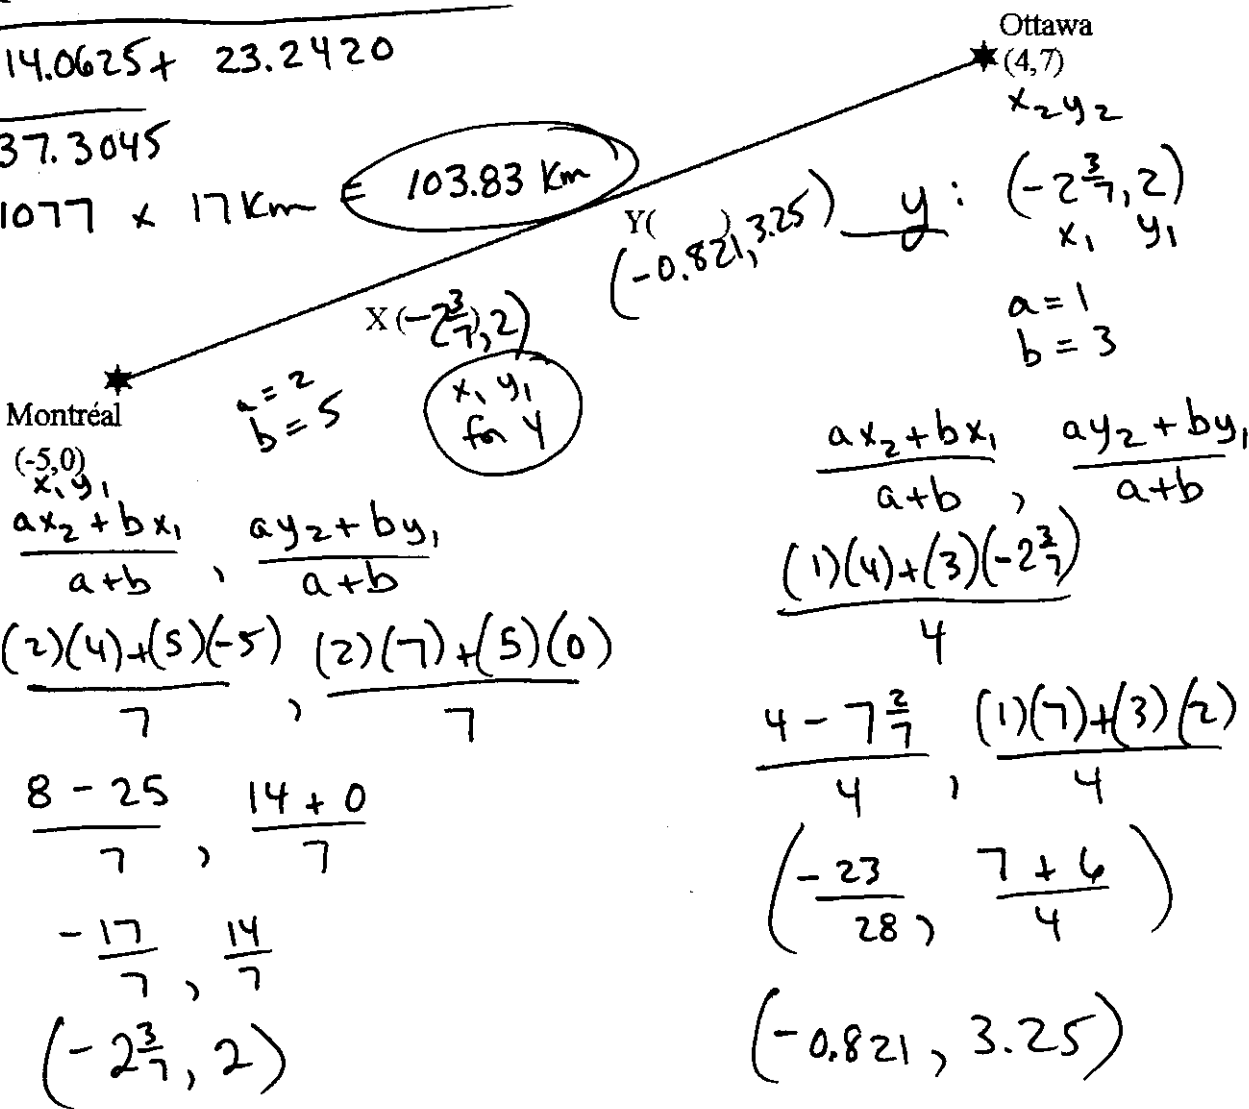 14.0625 + 23.2420
37.3045
1077 x 17 Km = 103.83 Km
Ottawa
(4,7)
x₂ y₂
y: (-2 3/7, 2)
x₁ y₁
a = 1
b = 3
Y( )
(-0.821, 3.25)
X (-2 3/7, 2)
x₁ y₁
for Y
a = 2
b = 5
Montréal
(-5,0)
x₁ y₁
ax₂ + bx₁ / a+b , ay₂ + by₁ / a+b
(2)(4)+(5)(-5) / 7 , (2)(7)+(5)(0) / 7
8 - 25 / 7 , 14 + 0 / 7
-17/7 , 14/7
(-2 3/7, 2)
ax₂ + bx₁ / a+b , ay₂ + by₁ / a+b
(1)(4)+(3)(-2 3/7) / 4
4 - 7 2/7 / 4 , (1)(7)+(3)(2) / 4
(-23/28, 7+6 / 4)
(-0.821, 3.25)